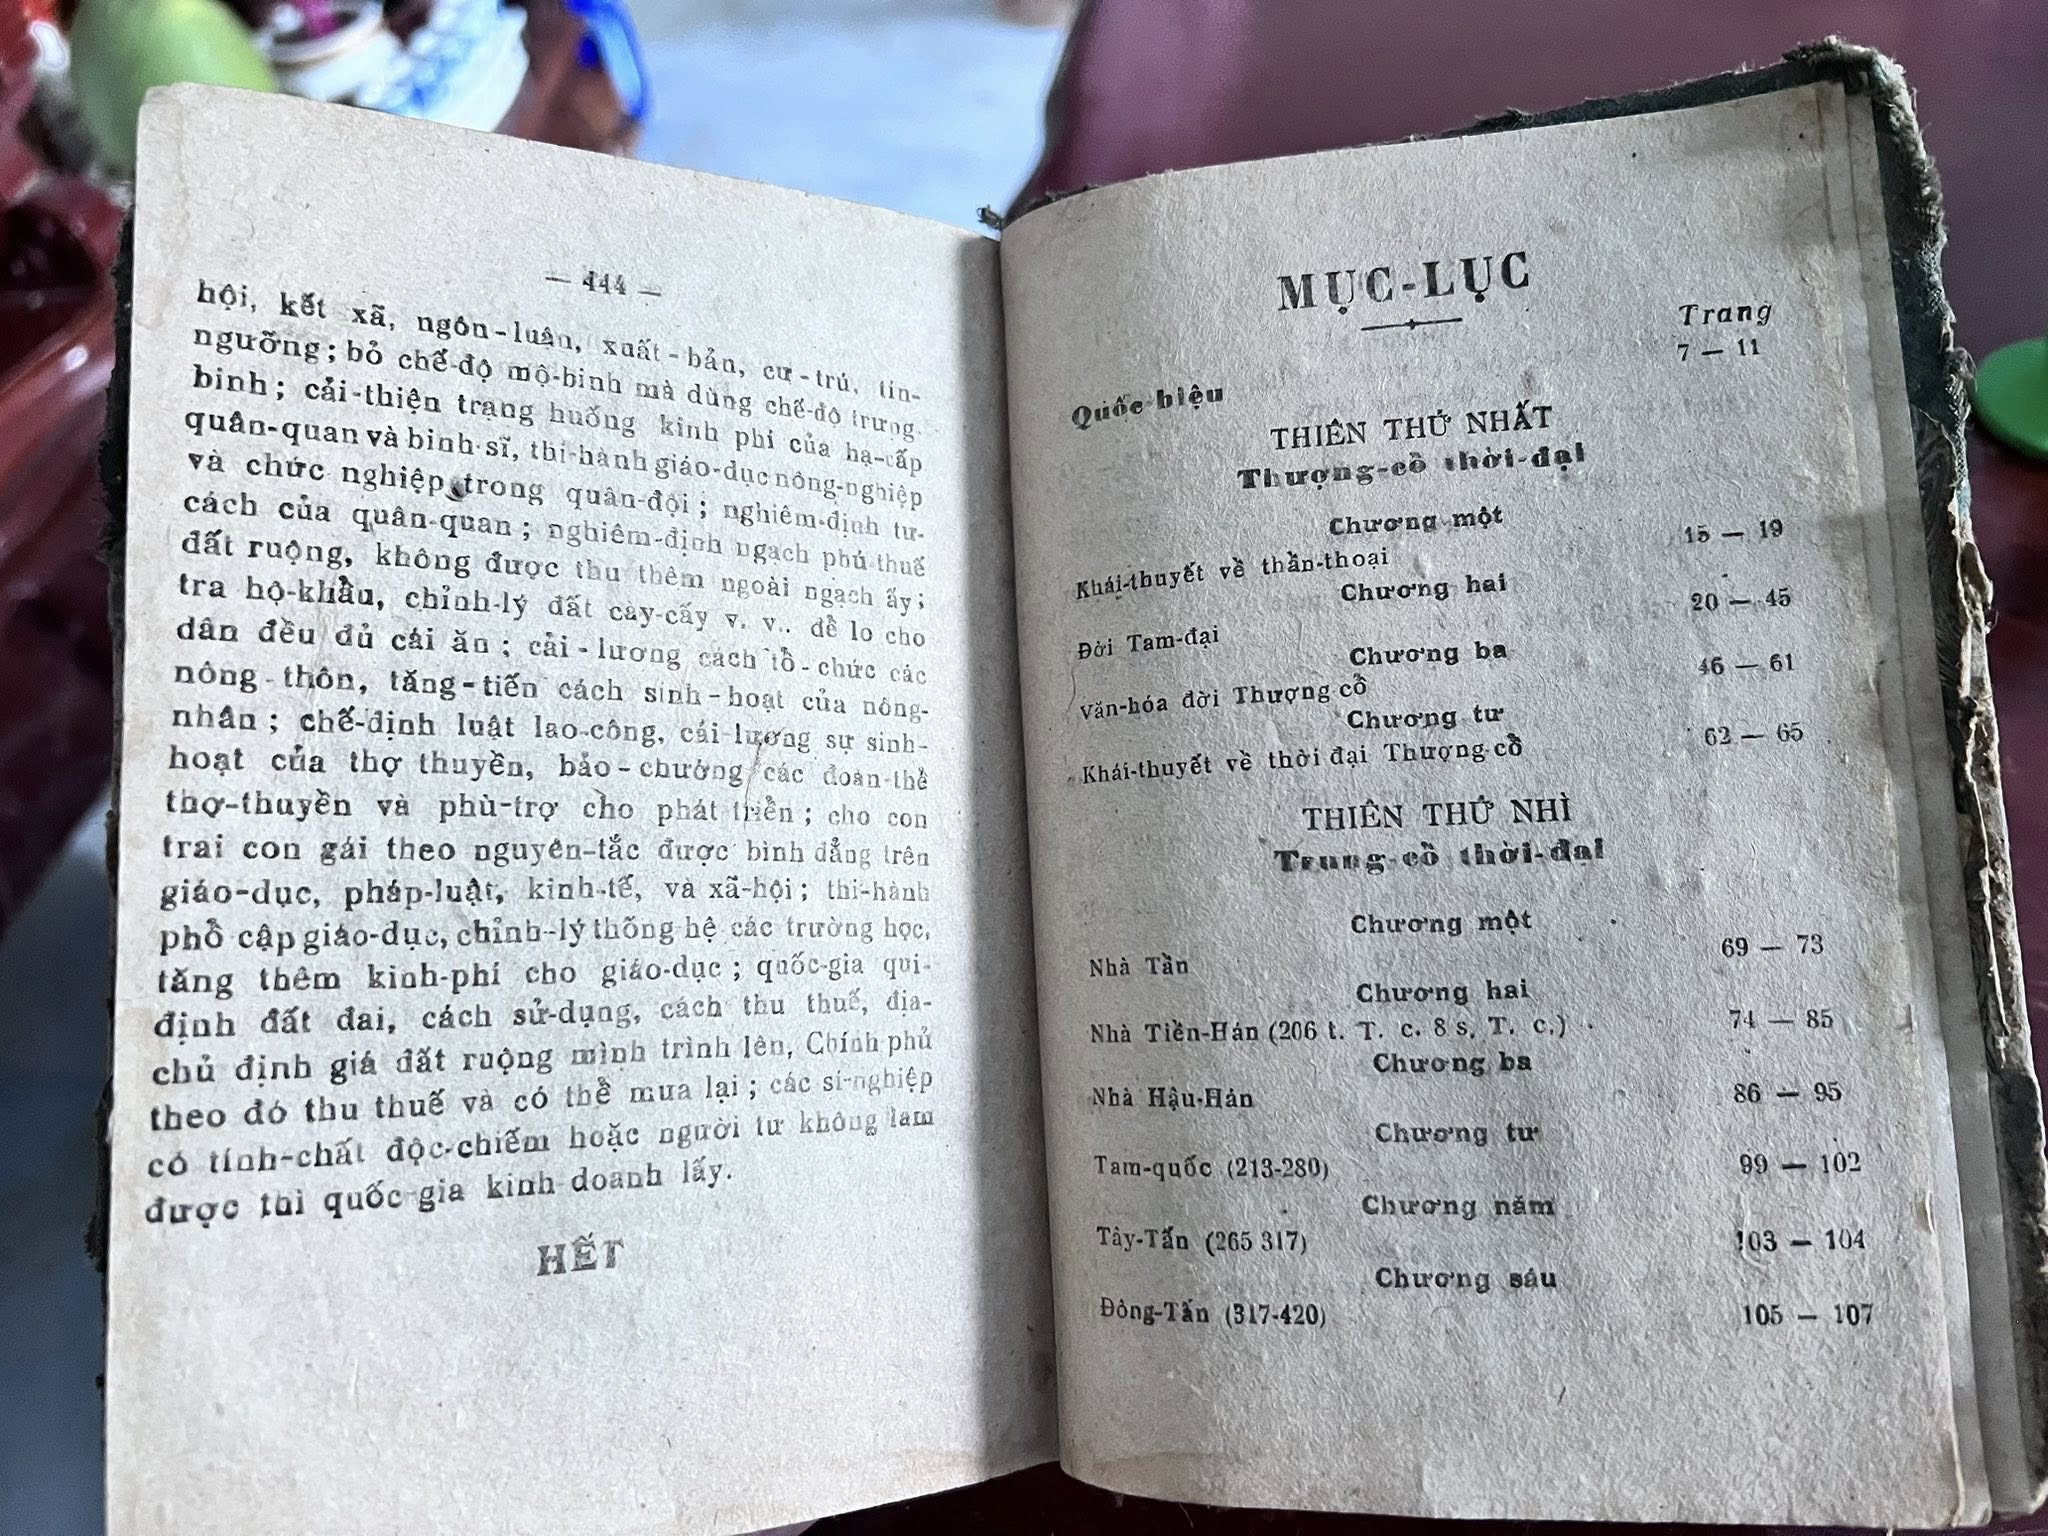 — 444 —
hội, kết xã, ngôn-luận, xuất-bản, cư-trú, tín-
ngưỡng; bỏ chế-độ mộ-binh mà dùng chế-độ trưng-
binh; cải-thiện trạng huống kinh phí của hạ-cấp
quân-quan và binh-sĩ, thi-hành giáo-dục nông-nghiệp
và chức nghiệp trong quân-đội; nghiêm-định tư-
cách của quân-quan; nghiêm-định ngạch phú-thuế
đất ruộng, không được thu thêm ngoài ngạch ấy;
tra hộ-khẩu, chỉnh-lý đất cày-cấy v. v.. để lo cho
dân đều đủ cái ăn; cải-lương cách tổ-chức các
nông-thôn, tăng-tiến cách sinh-hoạt của nông-
nhân; chế-định luật lao-công, cải lương sự sinh-
hoạt của thợ thuyền, bảo-chướng các đoàn-thể
thợ-thuyền và phù-trợ cho phát triển; cho con
trai con gái theo nguyên-tắc được bình đẳng trên
giáo-dục, pháp-luật, kinh-tế, và xã-hội; thi-hành
phổ cập giáo-dục, chỉnh-lý thống hệ các trường học,
tăng thêm kinh-phí cho giáo-dục; quốc-gia qui-
định đất đai, cách sử-dụng, cách thu thuế, địa-
chủ định giá đất ruộng mình trình lên, Chính phủ
theo đó thu thuế và có thể mua lại; các sí-nghiệp
có tính-chất độc-chiếm hoặc người tư không lam
được thì quốc-gia kinh-doanh lấy.
HẾT
MỤC-LỤC
Trang
Quốc-hiệu 7 — 11
THIÊN THỨ NHẤT
Thượng-cổ thời-đại
Chương một
Khái-thuyết về thần-thoại 15 — 19
Chương hai
Đời Tam-đại 20 — 45
Chương ba
Văn-hóa đời Thượng-cổ 46 — 61
Chương tư
Khái-thuyết về thời đại Thượng-cổ 62 — 65
THIÊN THỨ NHÌ
Trung-cổ thời-đại
Chương một
Nhà Tần 69 — 73
Chương hai
Nhà Tiền-Hán (206 t. T. c. 8 s, T. c.) 74 — 85
Chương ba
Nhà Hậu-Hán 86 — 95
Chương tư
Tam-quốc (213-280) 99 — 102
Chương năm
Tây-Tấn (265 317) 103 — 104
Chương sáu
Đông-Tấn (317-420) 105 — 107